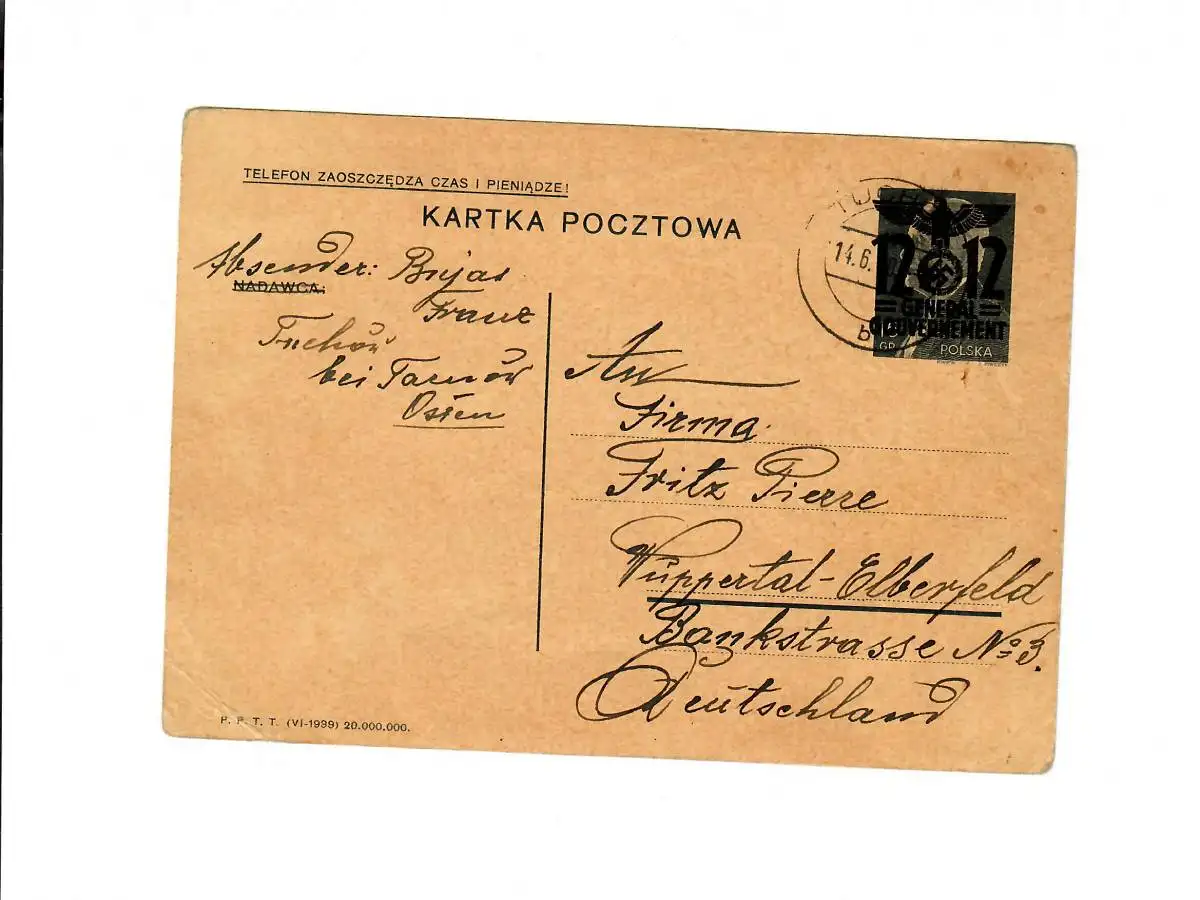 TELEFON ZAOSZCZĘDZA CZAS I PIENIĄDZE!
KARTKA POCZTOWA
Absender: Bujas
NADAWCA:
Franz
Tuchów
bei Tarnów
Osten
TUCH
14.6.
b
12 12
GENERAL
GOUVERNEMENT
GR POLSKA
An
Firma
Fritz Pierre
Wuppertal-Elberfeld
Bankstrasse No 3.
Deutschland
P. P. T. T. (VI-1939) 20.000.000.